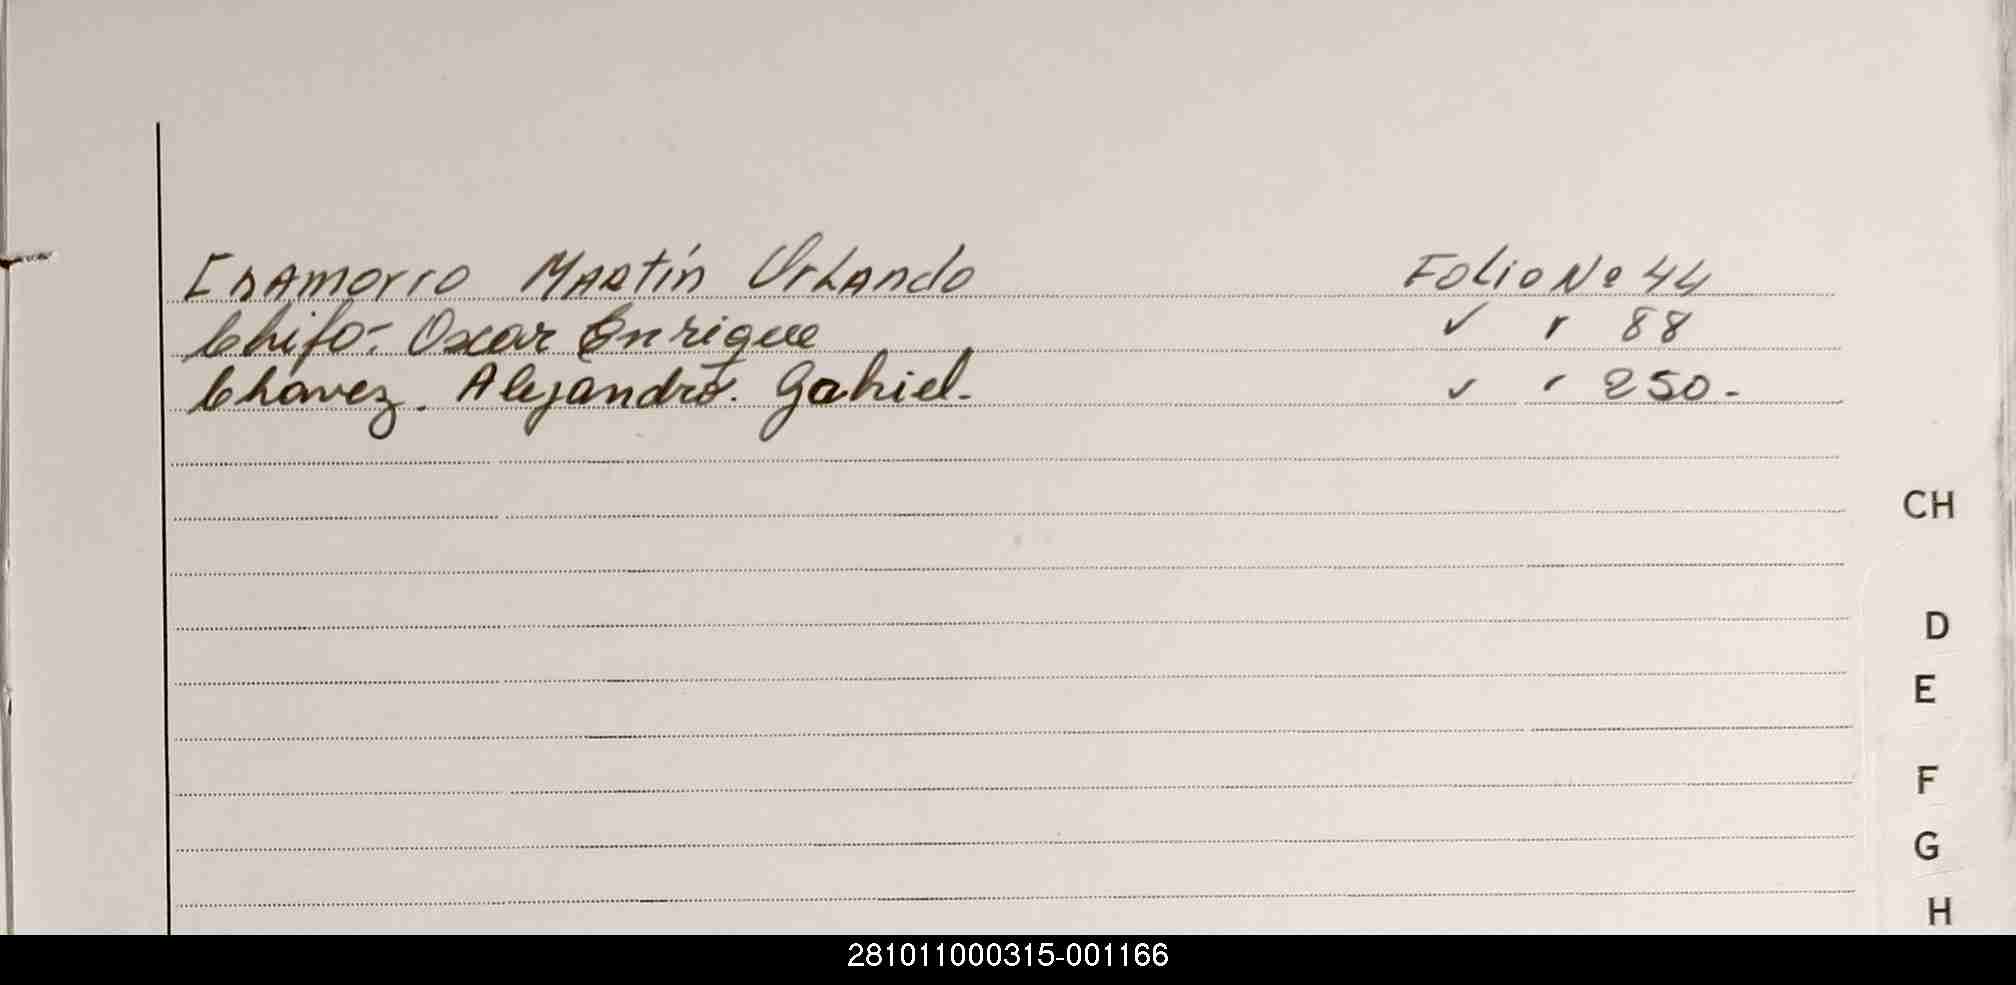 Chamorro Martín Orlando Folio Nº 44
Chifo- Oscar Enrique " " 88
Chavez. Alejandro. Gabriel. " " 250-
CH
D
E
F
G
H
281011000315-001166